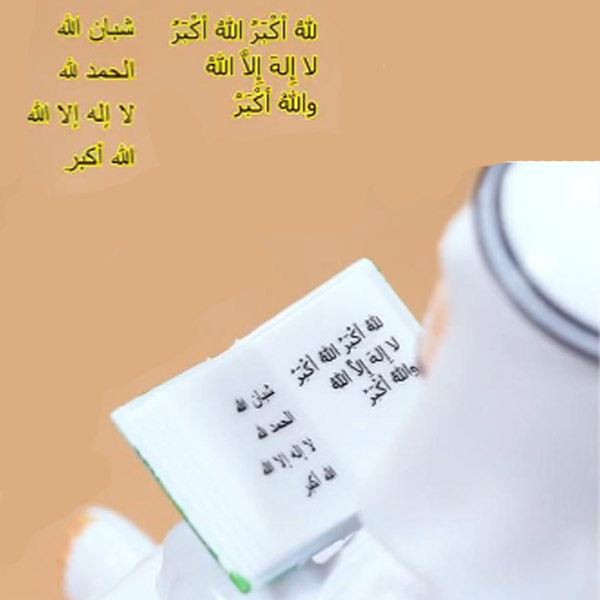 للهُ أكْبَرُ اللهُ أكْبَرُ
لا إِلهَ إِلاَّ اللهُ
واللهُ أكْبَرُ
شبان الله
الحمد لله
لا إله إلا الله
الله أكبر
للهُ أكْبَرُ اللهُ أكْبَرُ
لا إِلهَ إِلاَّ اللهُ
واللهُ أكْبَرُ
شبان الله
الحمد لله
لا إله إلا الله
الله أكبر